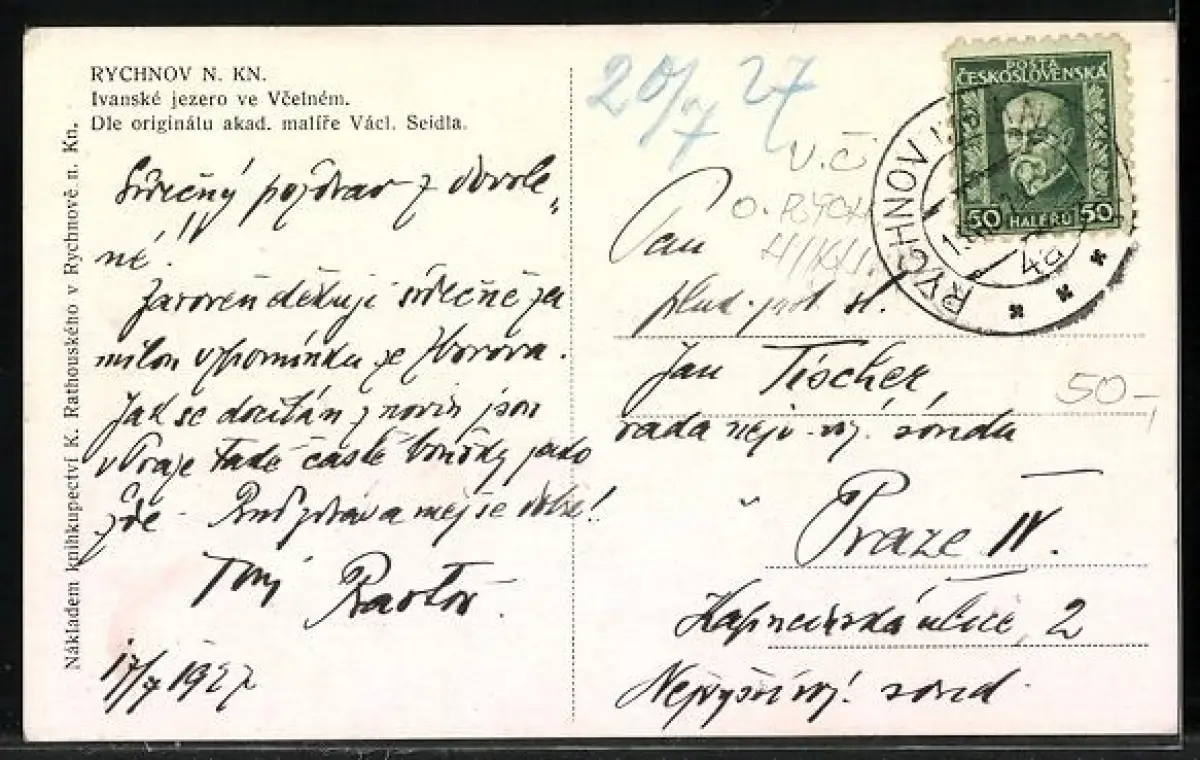 RYCHNOV N. KN.
Ivanské jezero ve Včelném.
Dle originálu akad. malíře Václ. Seidla.
Nákladem knihkupectví K. Rathouského v Rychnově n. Kn.
Srdečný pozdrav z dovole„
né!
Zároveň děkuji srdečně za
milou vzpomínku ze Zborova.
Jak se dočítám z novin jsou
v Praze také časté bouřky jako
zde - Buď zdráv a měj se dobře!
Tvůj
17/7 1927
20/7 27
V. Č.
O. RYCH
POSTA
ČESKOSLOVENSKÁ
50 HALÉŘŮ 50
RYCHNOV
4a
Pan
Jan Tischer,
rada nejv. soudu
50,-
v Praze IV.
2
Nejvyšší soud.